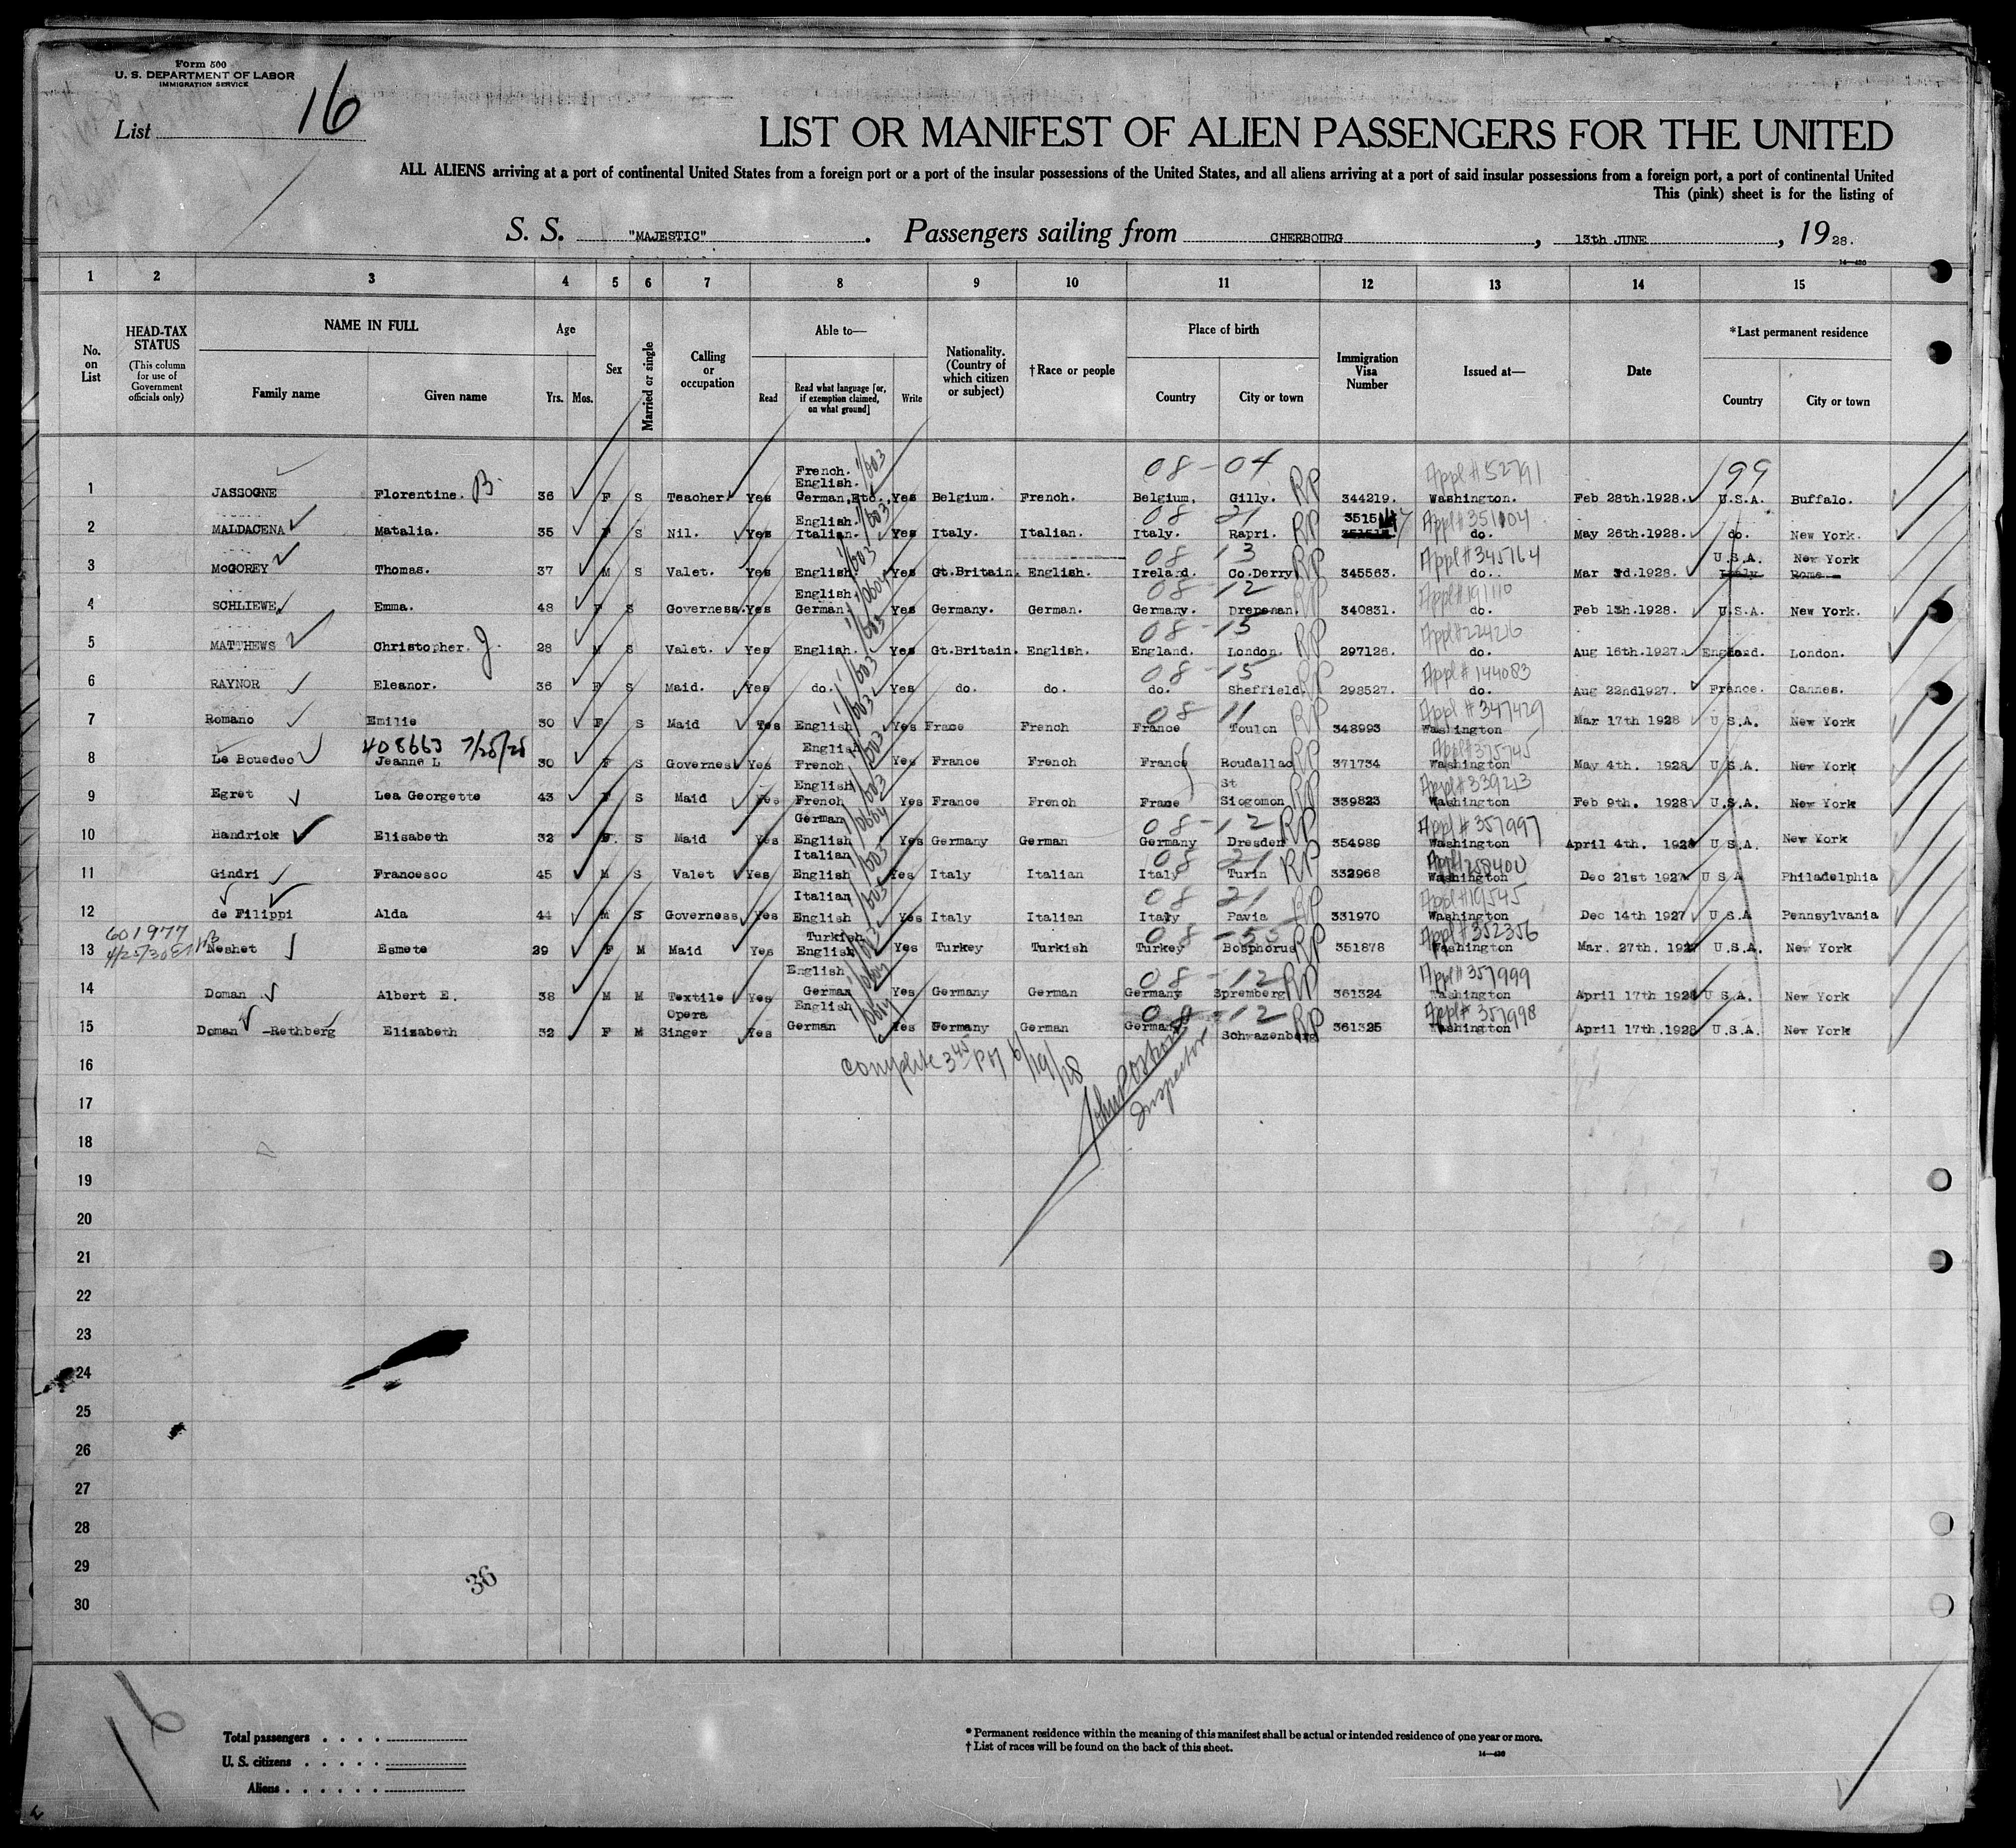 Form 500
U. S. DEPARTMENT OF LABOR
IMMIGRATION SERVICE
List 16
LIST OR MANIFEST OF ALIEN PASSENGERS FOR THE UNITED
ALL ALIENS arriving at a port of continental United States from a foreign port or a port of the insular possessions of the United States, and all aliens arriving at a port of said insular possessions from a foreign port, a port of continental United
This (pink) sheet is for the listing of
S. S. "MAJESTIC". Passengers sailing from CHERBOURG, 13th JUNE, 1928.
14—430
1 2 3 4 5 6 7 8 9 10 11 12 13 14 15
No. on List
HEAD-TAX STATUS (This column for use of Government officials only)
NAME IN FULL
Family name Given name
Age
Yrs. Mos.
Sex
Married or single
Calling or occupation
Able to—
Read Read what language [or, if exemption claimed, on what ground] Write
Nationality. (Country of which citizen or subject)
†Race or people
Place of birth
Country City or town
Immigration Visa Number
Issued at—
Date
*Last permanent residence
Country City or town
08-04 Appl # 52791 199
1 JASSOGNE Florentine. B. 36 F S Teacher Yes French. English. German, Etc. Yes Belgium. French. Belgium. Gilly. RP 344219. Washington. Feb 28th.1928. U.S.A. Buffalo.
08 21 Appl # 351004
2 MALDACENA Matalia. 35 F S Nil. Yes English. Italian. Yes Italy. Italian. Italy. Rapri. RP do. May 26th.1928. do. New York.
08 13 Appl # 345764
3 McGOREY Thomas. 37 M S Valet. Yes English Yes Gt.Britain. English. Ireland. Co.Derry RP 345563. do. Mar 3d.1928. U.S.A. New York Italy Rome
08-12 Appl # 191110
4 SCHLIEWE. Emma. 48 F S Governess. Yes English. German Yes Germany. German. Germany. Drepsnan. RP 340831. do. Feb 13h.1928. U.S.A. New York.
08-15 Appl # 224216
5 MATTHEWS Christopher. J. 28 M S Valet. Yes English. Yes Gt.Britain. English. England. London. RP 297126. do. Aug 16th.1927. England. London.
08-15 Appl # 144083
6 RAYNOR Eleanor. 36 F S Maid. Yes do. Yes do. do. do. Sheffield. RP 298527. do. Aug 22nd1927. France. Cannes.
08-11 Appl # 347429
7 Romano Emilie 30 F S Maid Yes English Yes Frace French France Toulon RP 348993 Washington Mar 17th 1928 U S.A. New York
408663 7/25/28 Appl # 375745
8 Le Bouedec Jeanne L 30 F S Governess Yes English French Yes France French France Roudallac RP 371734 Washington May 4th. 1928 U S.A. New York
Appl # 339213
9 Egret Lea Georgette 43 F S Maid Yes English French Yes France French France St Siogomon RP 339823 Washington Feb 9th. 1928 U.S.A. New York
08-12 Appl # 357997
10 Handrick Elisabeth 32 F. S Maid Yes German English Yes Germany German Germany Dresden RP 354989 Washington April 4th. 1928 U S.A. New York
08 21 Appl # 258400
11 Gindri Francesco 45 M S Valet Yes Italian English Yes Italy Italian Italy Turin RP 332968 Washington Dec 21st 1927 U S A Philadelphia
08 21 Appl # 19545
12 de Filippi Alda 44 M S Governess Yes Italian English Yes Italy Italian Italy Pavia RP 331970 Washington Dec 14th 1927 U S A Pennsylvania
601977 08-55 Appl # 352356
13 4/25/30 Neshet Esmete 29 F M Maid Yes Turkish English Yes Turkey Turkish Turkey Bosphorus RP 351878 Washington Mar. 27th. 1927 U.S.A. New York
08-12 Appl # 357999
14 Doman Albert E. 38 M M Textile Yes English German Yes Germany German Germany Spremberg RP 361324 Washington April 17th 1928 U S A. New York
08-12 Appl # 357998
15 Doman -Rethberg Elizabeth 32 F M Opera Singer Yes English German Yes Germany German Germany Schwazenberg RP 361325 Washington April 17th.1928 U.S.A. New York
Complete 3 45 PM 6/19/28
Inspector
16
17
18
19
20
21
22
23
24
25
26
27
28
29
30
36
16
Total passengers
U. S. citizens
Aliens
* Permanent residence within the meaning of this manifest shall be actual or intended residence of one year or more.
† List of races will be found on the back of this sheet.
14—430